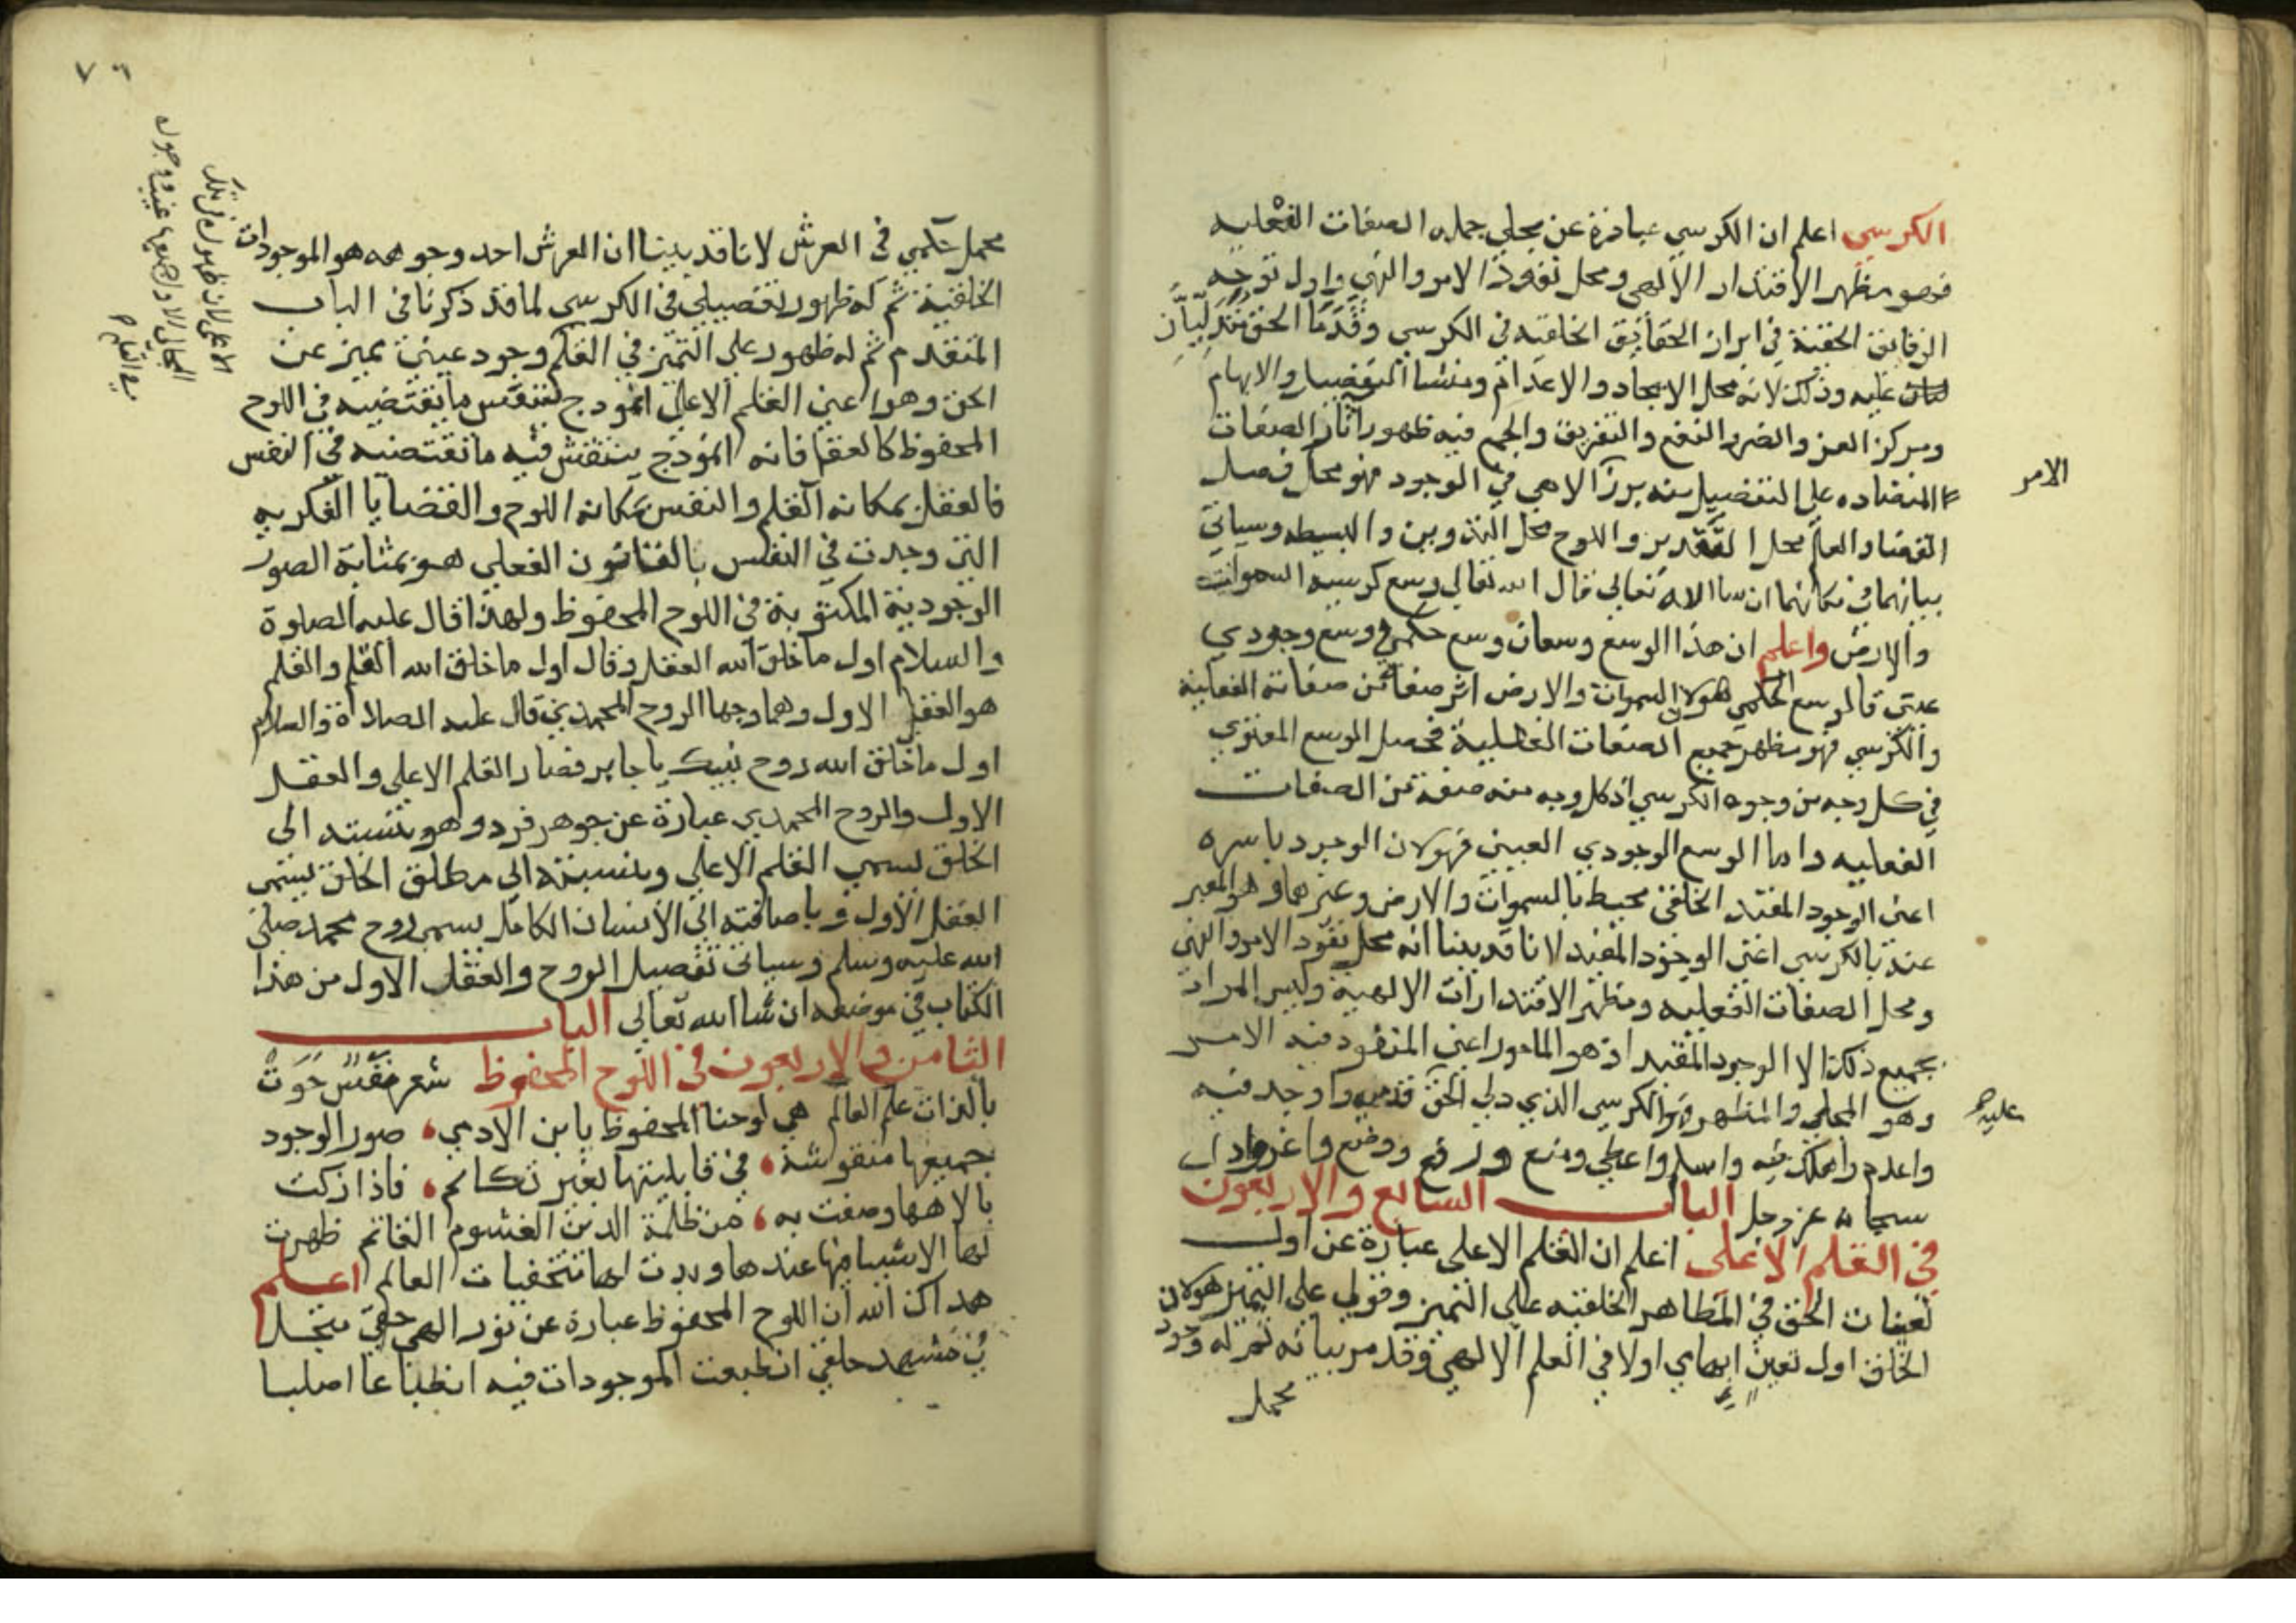 الكرسي اعلم ان الكرسي عبارة عن مجلي جملة الصفات الفعلية
فهو مظهر الاقتدار الالهي ومحل نفوذ الامر والنهي واول توجه
الرقايق الحقية في ابراز الحقايق الخلقيه في الكرسي وقدما الحق متدليتان
عليه وذلك لانه محل الايجاد والاعدام ومنشا التفصيل والابهام
ومركز العز والضر والنفع والتفريق والجمع فيه ظهور اثار الصفات
المتضاده على التفصيل منه برز الالاهي في الوجود فهو محل فصل
الامر
القضا والعلم محل التقدير واللوح محل التدوين والبسيطه وسياتي
بيانهما في مكانهما ان سا الله تعالى قال الله تعالى وسع كرسيه السموات
والارض واعلم ان هذا الوسع وسعان وسع حكمي ووسع وجودي
عيني فالوسع الحكمي هو لان السموات والارض اثر صفة من صفاته الفعلية
والكرسي فهو مظهر جميع الصفات الفعلية فحصل الوسع المعنوي
في كل وجه من وجوه الكرسي اذ كل وجه منه صفة من الصفات
الفعليه واما الوسع الوجودي العيني فهو لان الوجود باسره
اعنى الوجود المقيد الخلقي محيط بالسموات والارض وغيرهما وهو المعبر
عنه بالكرسي اعنى الوجود المقيد لانا قد بينا انه محل نفوذ الامر والنهى
ومحل الصفات الفعليه ومظهر الاقتدارات الالهية وليس المراد
بجميع ذلك الا الوجود المقيد اذ هو المامور اعني المنفوذ فيه الامر
وهو المجلي والمظهر فهو الكرسي الذي دلي الحق قدميه واوجد فيه
عليه
واعدم واهلك فيه واسلم واعطى ومنع ورفع ووضع واعز واذل
سبحانه عز وجل الباب السابع والاربعون
في القلم الاعلى اعلم ان القلم الاعلى عبارة عن اول
تعينات الحق في المظاهر الخلقيه على التميز وقولي على التميز هو لان
الخلق اول تعين ابهامي اولا في العلم الالهي وقد مر بيانه ثم له وجود
مجمل
٧٦
مجمل حكمي في العرش لانا قد بينا ان العرش احد وجوهه هو الموجودات
الخلقية ثم له ظهور تفصيلي في الكرسي لما قد ذكرنا في الباب
المتقدم ثم له ظهور على التميز في القلم وجود عيني مميز عن
الحق وهو اعني القلم الاعلى انموذج ينتقش ما يقتضيه في اللوح
المحفوظ كالعقل فانه انموذج ينتقش فيه ما تقتضيه في النفس
فالعقل بمكانه القلم والنفس بمكانه اللوح والقضايا الفكريه
التي وجدت في النفس بالقانون الفعلي هو بمثابة الصور
الوجودية المكتوبة في اللوح المحفوظ ولهذا قال عليه الصلوة
والسلام اول ما خلق الله العقل وقال اول ما خلق الله القلم والقلم
هو العقل الاول وهما وجها الروح المحمدي قال عليه الصلاة والسلام
اول ما خلق الله روح نبيك يا جابر فصار القلم الاعلى والعقل
الاول والروح المحمدي عبارة عن جوهر فرد وهو بنسبته الى
الخلق يسمي القلم الاعلى وبنسبته الى مطلق الخلق يسمى
العقل الاول وباضافته الى الانسان الكامل يسمى روح محمد صلى
الله عليه وسلم وسياتى تفصيل الروح والعقل الاول من هذا
الكتاب في موضعه ان شا الله تعالى الباب
الثامن والاربعون في اللوح المحفوظ شعر نفس حوت
بالذات علم العالم هي لوحنا المحفوظ يا بن الادمي صور الوجود
جميعها منقوشة في قابليتها بغير تكاتم فاذا زكت
بالاهها وصفت به من ظلمة الدين الغشوم القاتم ظهرت
لها الاشيا فيها عندها وبدت لها مستخفيات العالم اعلم
هداك الله ان اللوح المحفوظ عبارة عن نور الهي حقي متجل
في مشهد خلقي انطبعت الموجودات فيه انطباعا اصليا